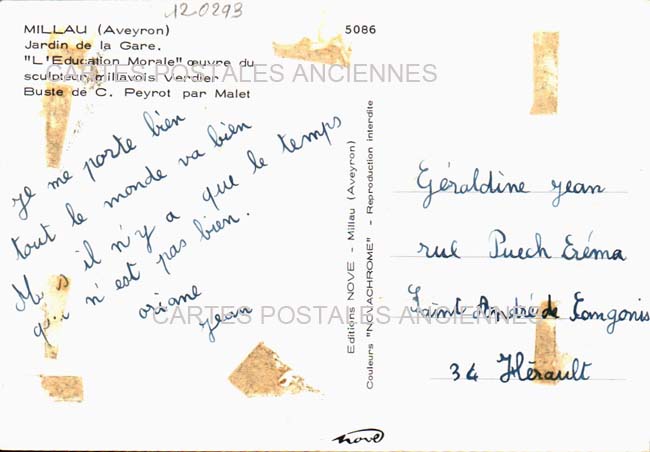 12.0293
MILLAU (Aveyron)
5086
Jardin de la Gare.
"L'Education Morale" œuvre du
sculpteur millavois Verdier
Buste de C. Peyrot par Malet
CARTES POSTALES ANCIENNES
Je me porte bien
tout le monde va bien
Mais il n'y a que le temps
qui n'est pas bien.
oriane
Jean
Editions NOVE - Millau (Aveyron)
Couleurs "NOVACHROME" - Reproduction interdite
Géraldine Jean
rue Puech Eréma
Saint André de Sangonis
34 Hérault
CARTES POSTALES ANCIENNES
nove